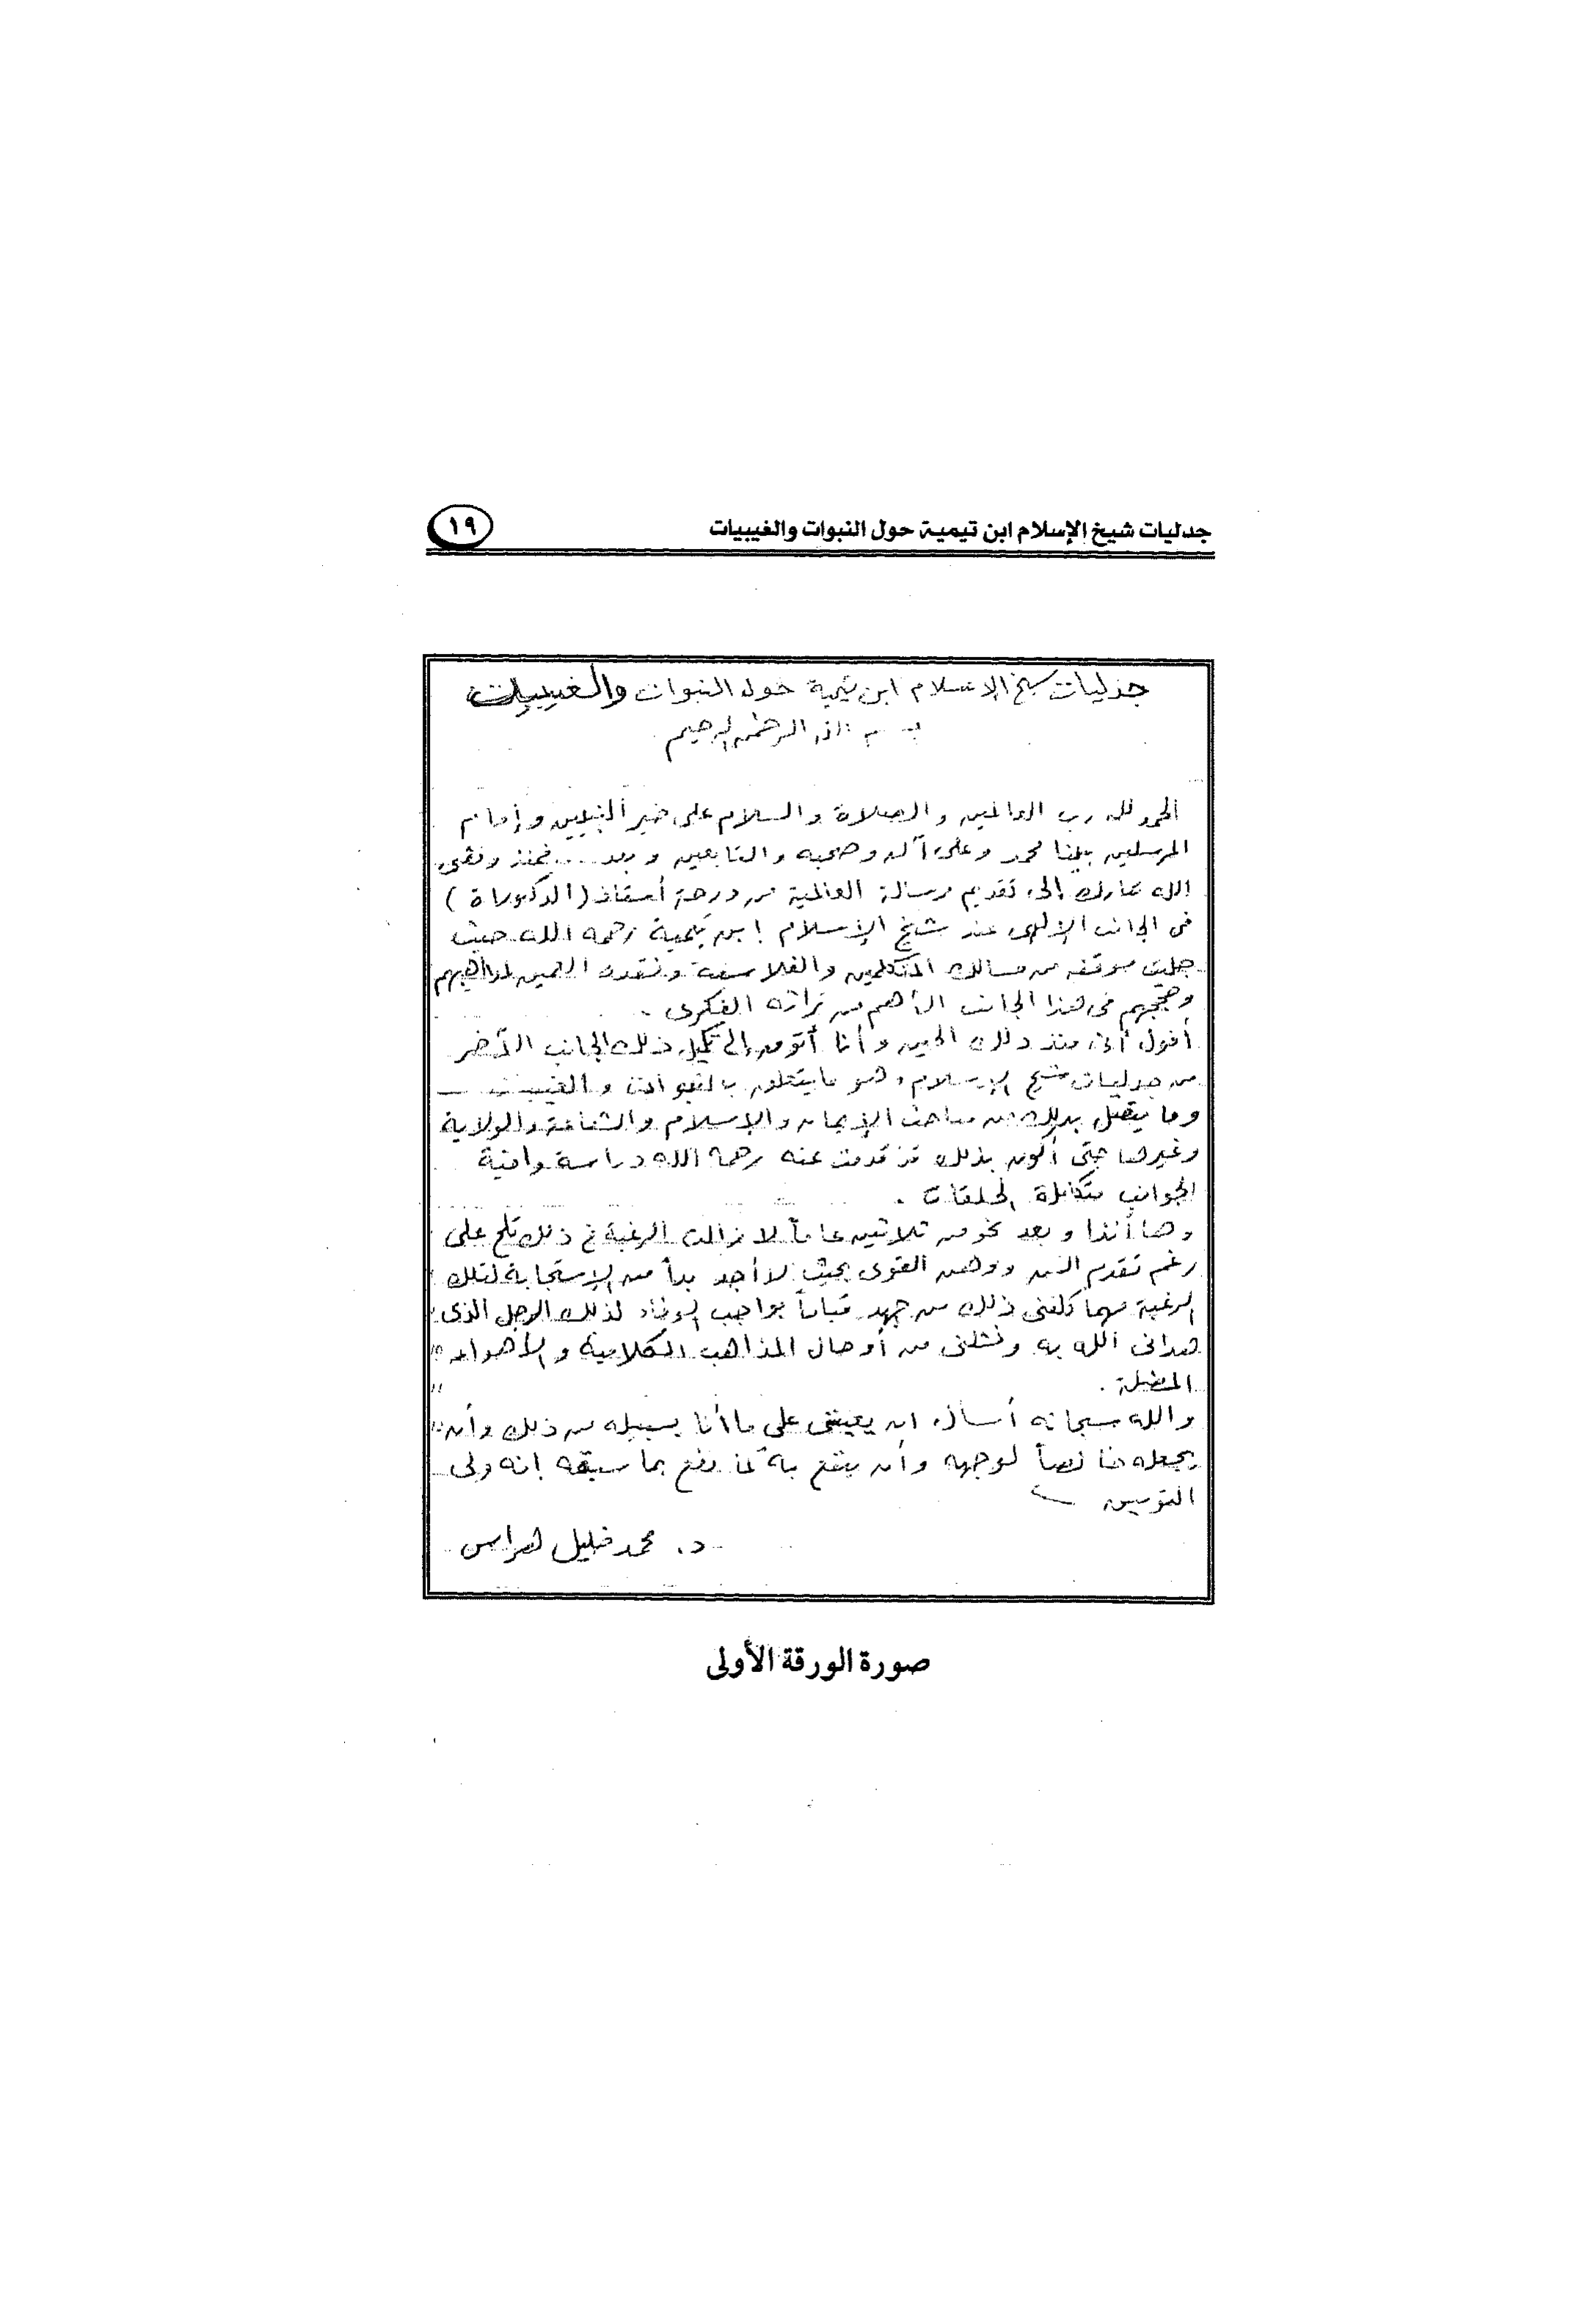 جدليات شيخ الإسلام ابن تيمية حول النبوات والغيبيات
١٩
جدليات شيخ الاسلام ابن تيمية حول النبوات والغيبيات
بسم الله الرحمن الرحيم
الحمد لله رب العالمين والصلاة والسلام على خير النبيين وإمام
المرسلين نبينا محمد وعلى آله وصحبه والتابعين وبعد ... فمنذ وفقنى
الله تبارك إلى تقديم رسالة العالمية من درجة أستاذ (الدكتوراة)
فى الجانب الإلهى عند شيخ الإسلام ابن تيمية رحمه الله حيث
جليت موقفه من مسالك المتكلمين والفلاسفة ونقده العميق لمذاهبهم
وحججهم فى هذا الجانب الأهم من تراثه الفكرى .
أقول أنى منذ ذلك الحين وأنا أتوق إلى تكميل ذلك الجانب الآخر
من جدليات شيخ الإسلام وهو ما يتعلق بالنبوات والغيبيات
وما يتصل بذلك من مباحث الإيمان والإسلام والشفاعة والولاية
وغيرها حتى أكون بذلك قد قدمت عنه رحمه الله دراسة وافية
الجوانب متكاملة الحلقات .
وها أنذا وبعد نحو من ثلاثين عاماً لا زالت الرغبة فى ذلك تلح على
رغم تقدم السن ووهن القوى بحيث لا أجد بداً من الإستجابة لتلك
الرغبة مهما كلفنى ذلك من جهد قياماً بواجب الوفاء لذلك الرجل الذى
هدانى الله به ونشلنى من أوحال المذاهب الكلامية والأهواء
المضلة .
والله سبحانه أسأل ان يعيننى على ما أنا بسبيله من ذلك وأن
يجعله خالصاً لوجهه وأن ينفع به كما نفع بما سبقه إنه ولى
المؤمنين
د. محمد خليل هراس
صورة الورقة الأولى